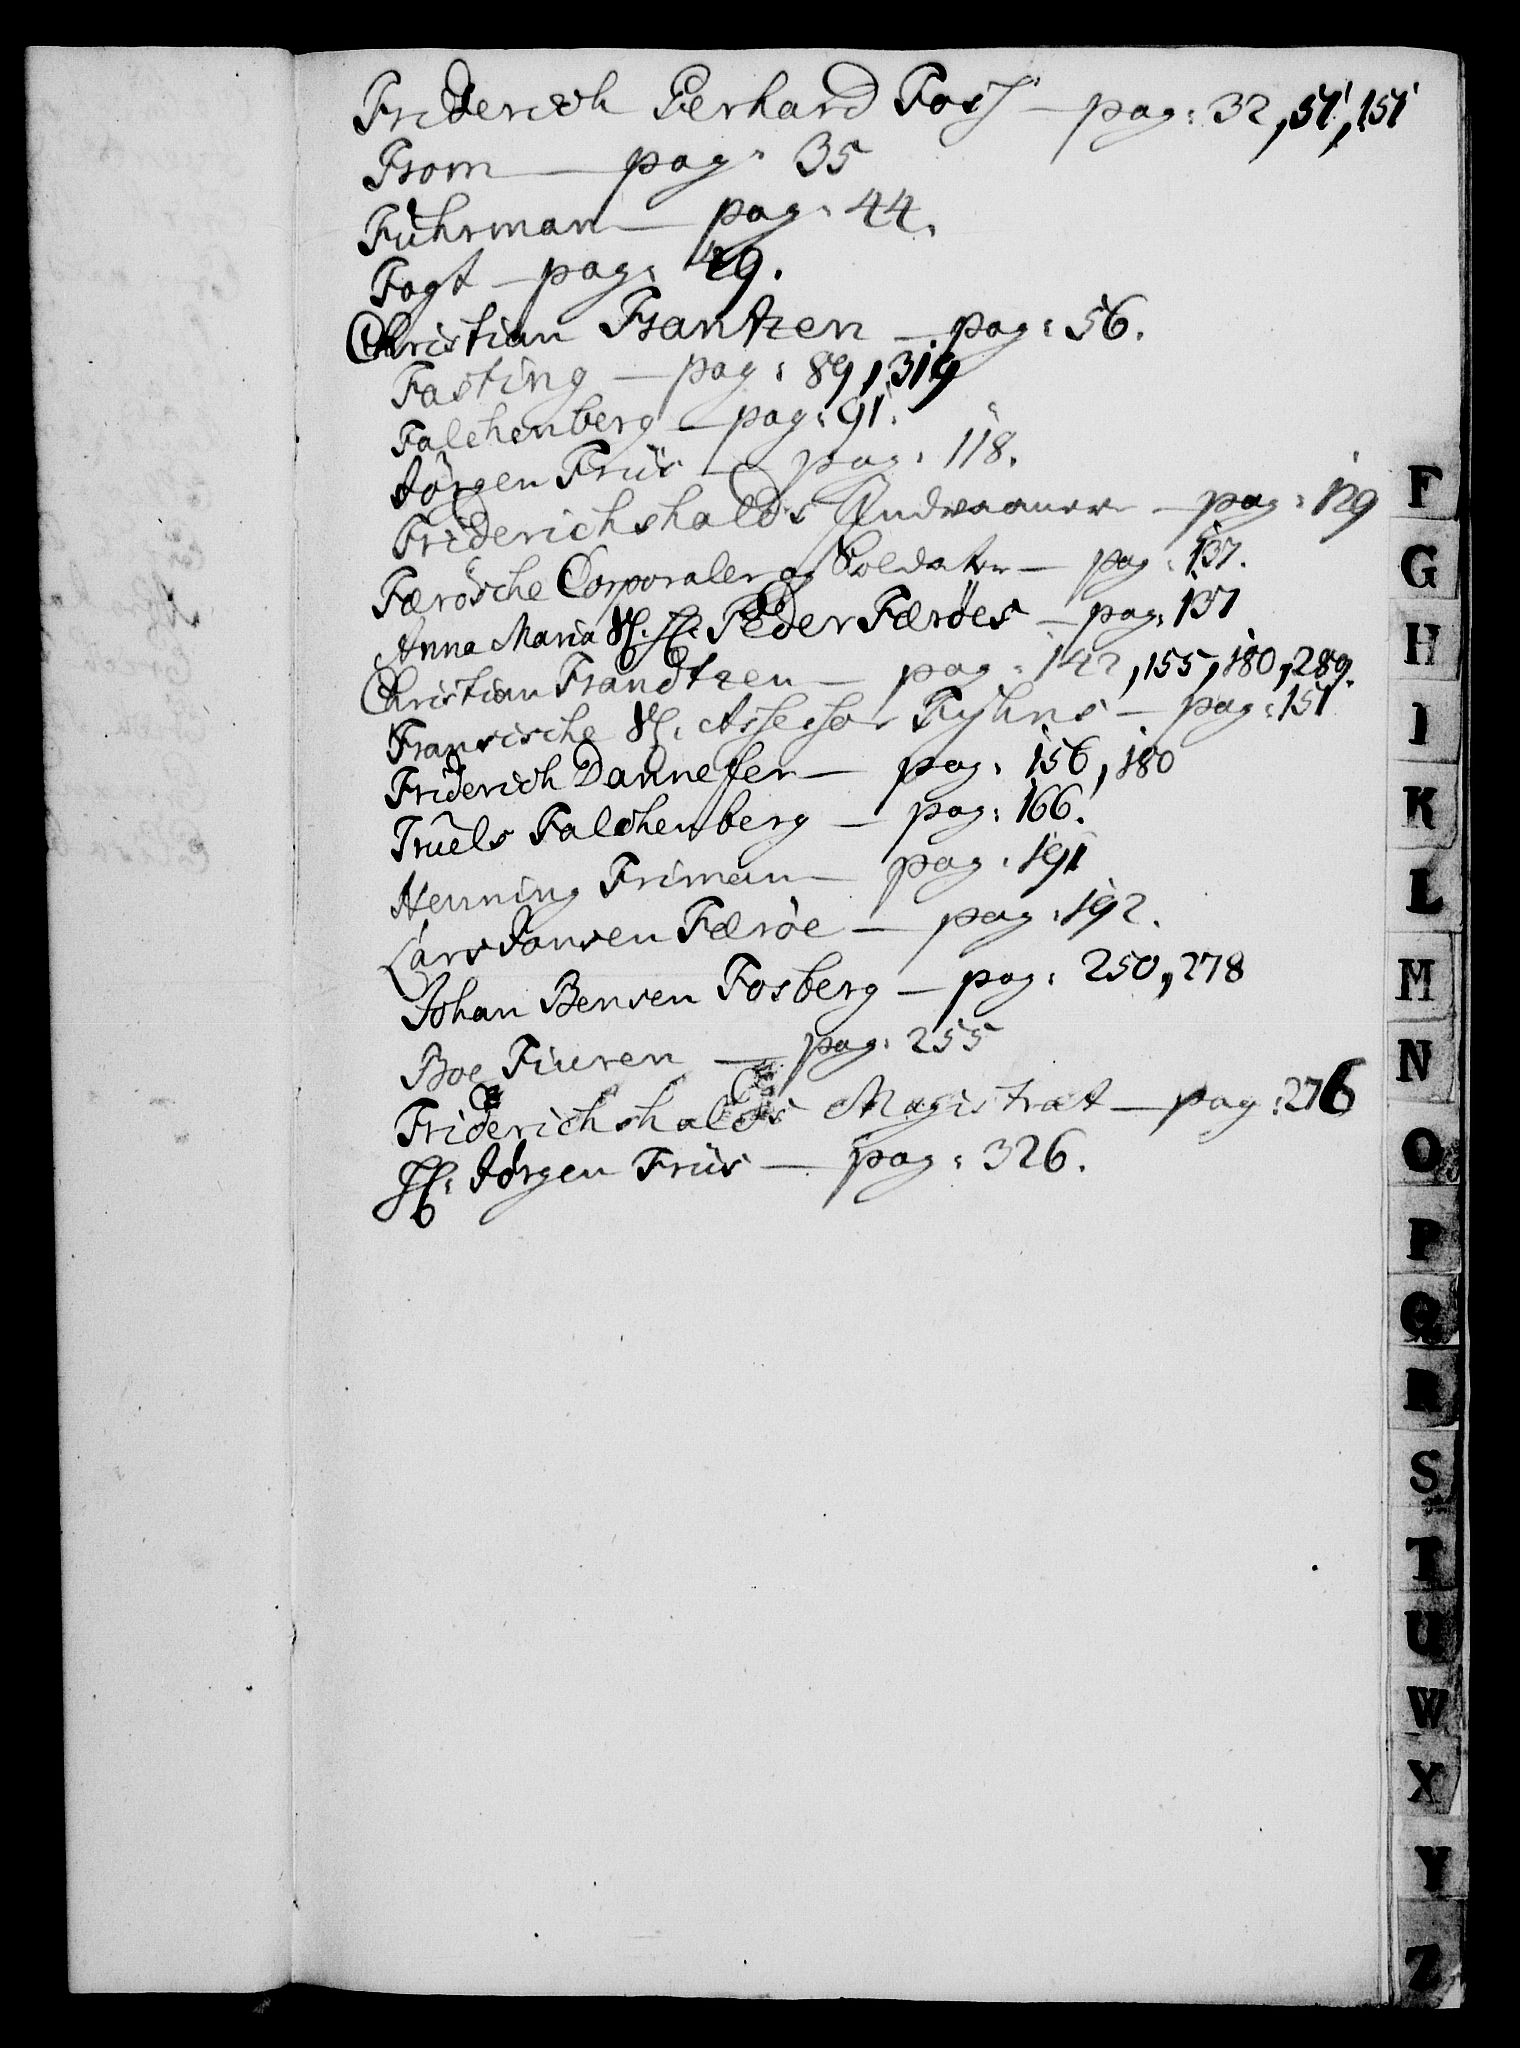 Friderich Gerhard Foss — pag: 32, 51, 151
From — pag: 35
Fuhrman — pag: 44.
Fogt — pag: 49.
Christian Frantzen — pag: 56.
Fasting — pag: 89, 319
Falchenberg — pag: 91.
Jörgen Friis — pag: 118.
Friderichshalds Indvaanere — pag: 129
Færösche Corporaler og Soldater — pag: 137.
Anna Maria Sl. Hr. Peder Færöes — pag: 137
Christian Frandtzen — pag: 142, 155, 180, 289.
Fransische Sl. Assessor Fyhns — pag: 151
Friderich Dannefer — pag: 156, 180
Truels Falchenberg — pag: 166.
Henning Friman — pag: 191
Lars Jonsen Færöe — pag: 192.
Johan Bensen Fosberg — pag: 250, 278
Boe Fiuren — pag: 255
Friderichshalds Magistrat — pag: 276
Hr: Jörgen Friis — pag: 326.
F
G
H
I
K
L
M
N
O
P
Q
R
S
T
U
W
X
Y
Z